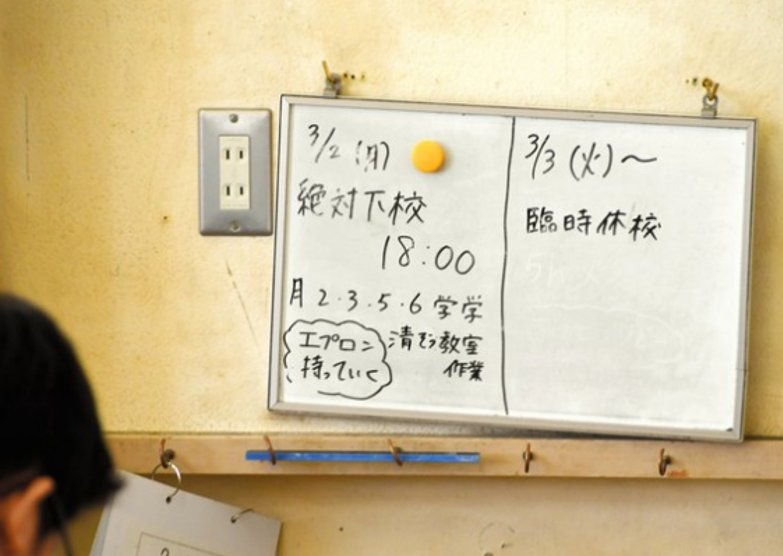 3/2 (月)
絶対下校
18:00
月 2・3・5・6 学学
エプロン
持っていく
清そう教室
作業
3/3 (火)〜
臨時休校